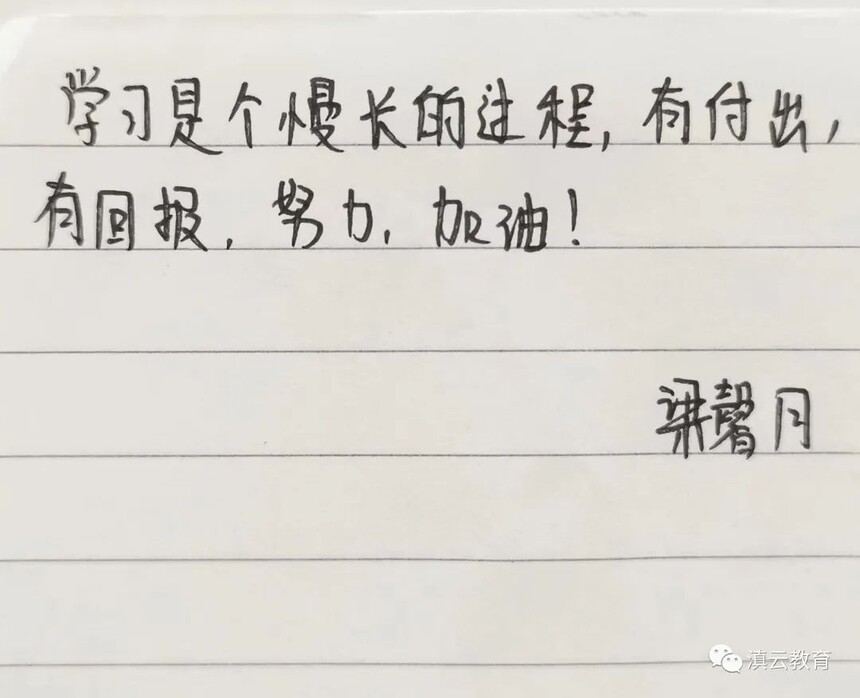 学习是个慢长的过程,有付出,
有回报,努力,加油!
梁馨月
滇云教育